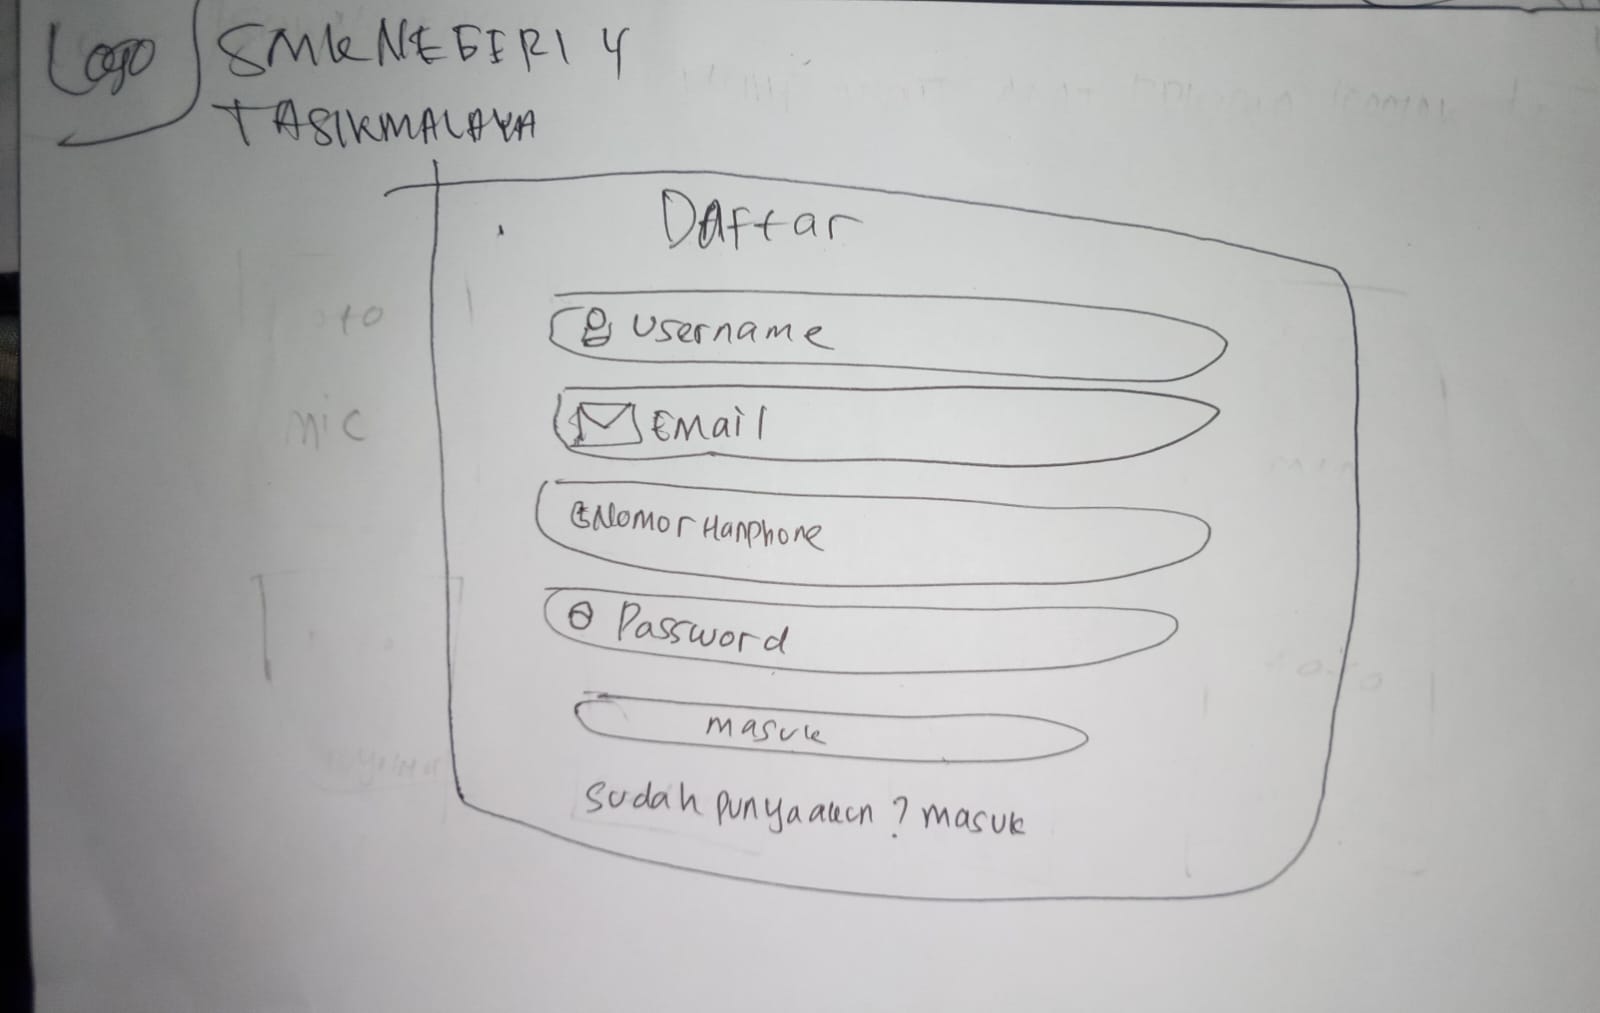 Logo SMK NEGERI 4
TASIKMALAYA
Daftar
Username
Email
Nomor Hanphone
Password
masuk
sudah punya akun ? masuk
nic